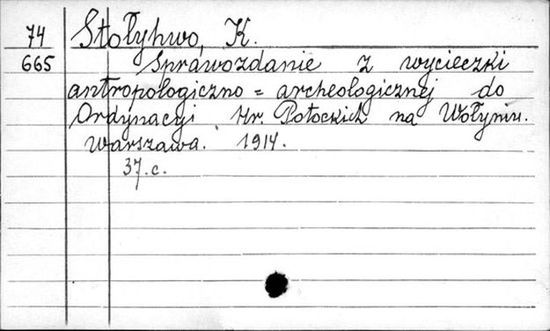 74 Stołyhwo, K.
665 Sprawozdanie z wycieczki
antropologiczno = archeologicznej do
Ordynacyi Hr. Potockich na Wołyniu.
Warszawa. 1914.
37.c.